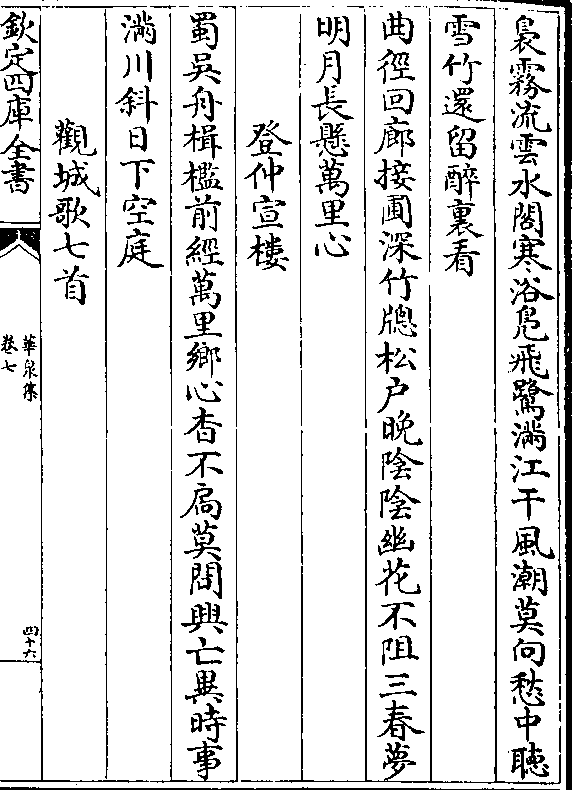 裊霧流雲水閣寒浴鳬飛鷺滿江干風潮莫向愁中聽
雪竹還留醉裏看
曲徑回廊接圃深竹牕松户晚陰陰幽花不阻三春夢
明月長懸萬里心
登仲宣樓
蜀吳舟楫檻前經萬里鄉心杳不扃莫問興亡異時事
滿川斜日下空庭
觀城歌七首
欽定四庫全書
華泉集
卷七
四十六